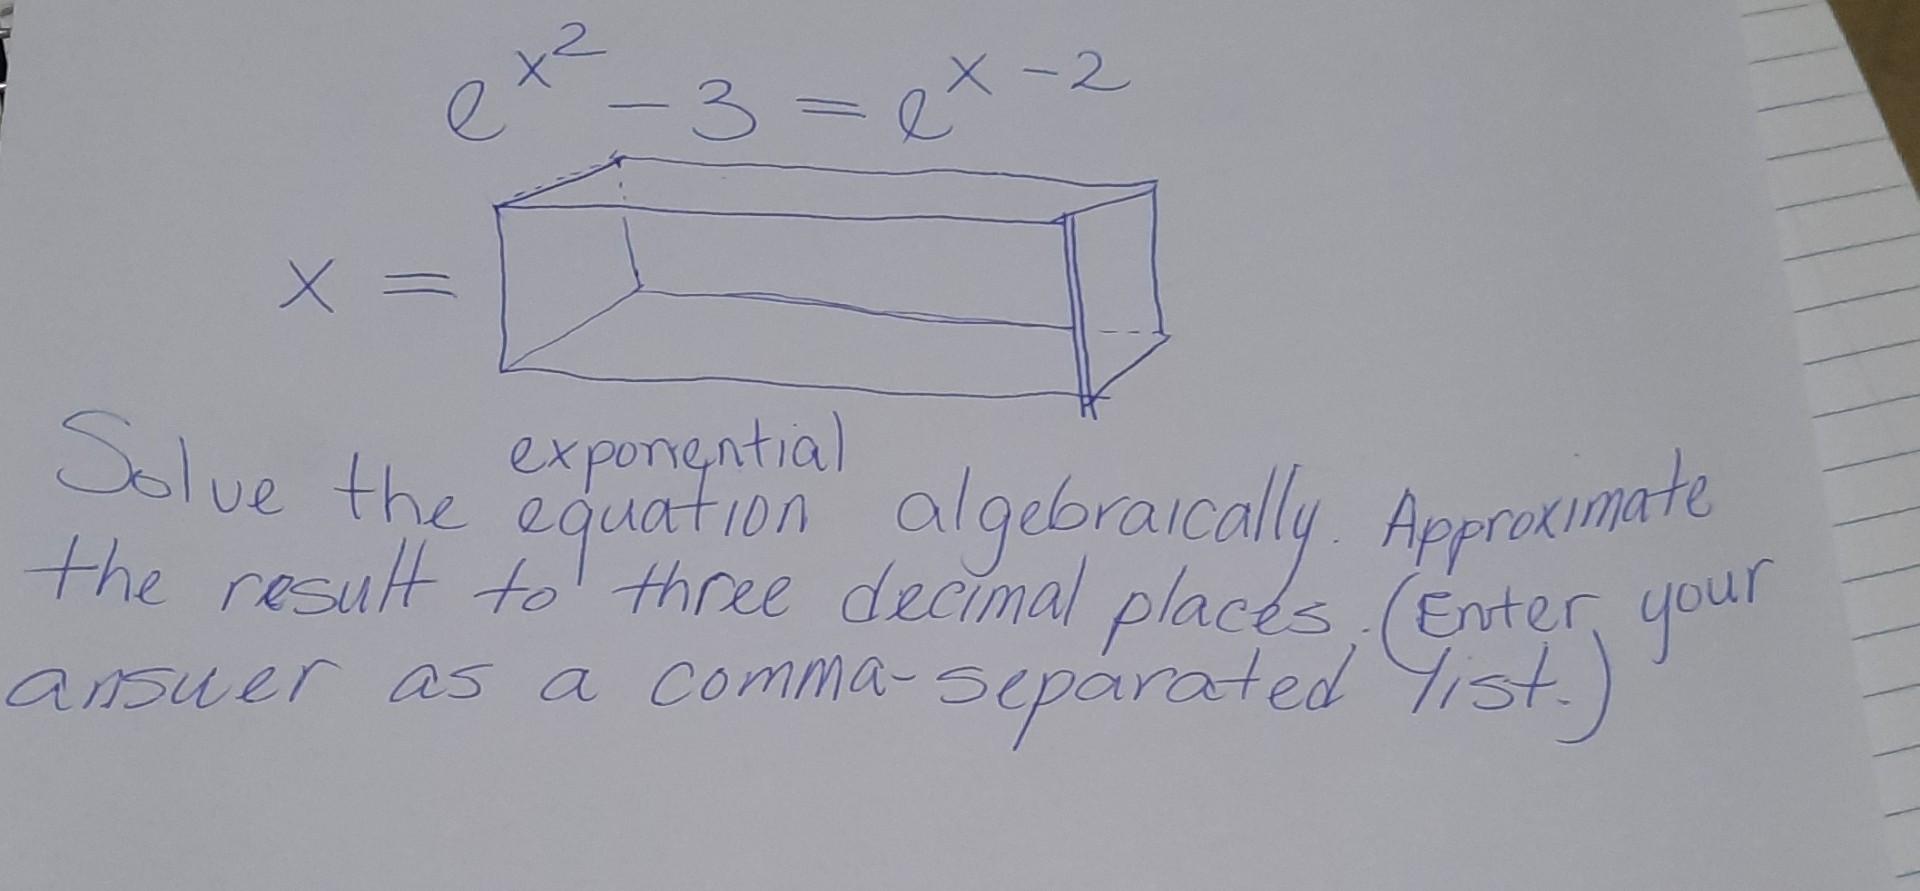 e^x² - 3 = e^x - 2
x =
exponential
Solve the equation algebraically. Approximate
the result to three decimal places. (Enter your
answer as a comma-separated list.)